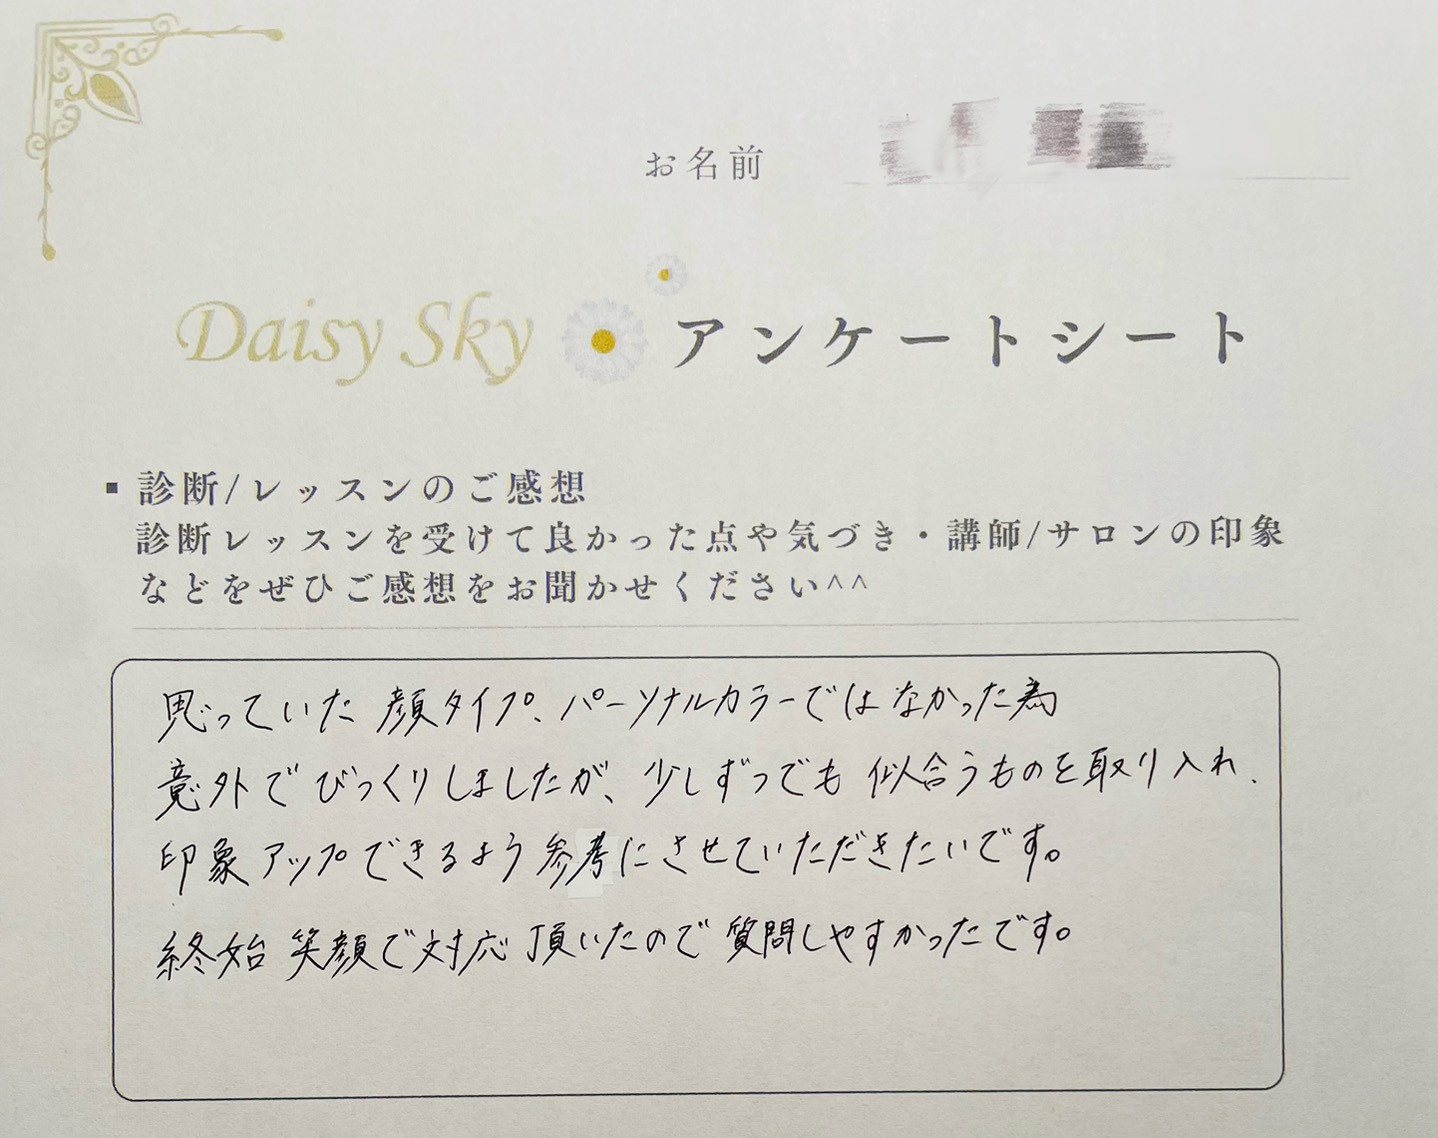 お名前
Daisy Sky アンケートシート
▪診断/レッスンのご感想
診断レッスンを受けて良かった点や気づき・講師/サロンの印象
などをぜひご感想をお聞かせください^^
思っていた顔タイプ、パーソナルカラーではなかった為
意外でびっくりしましたが、少しずつでも似合うものを取り入れ、
印象アップできるよう参考にさせていただきたいです。
終始笑顔で対応頂いたので質問しやすかったです。